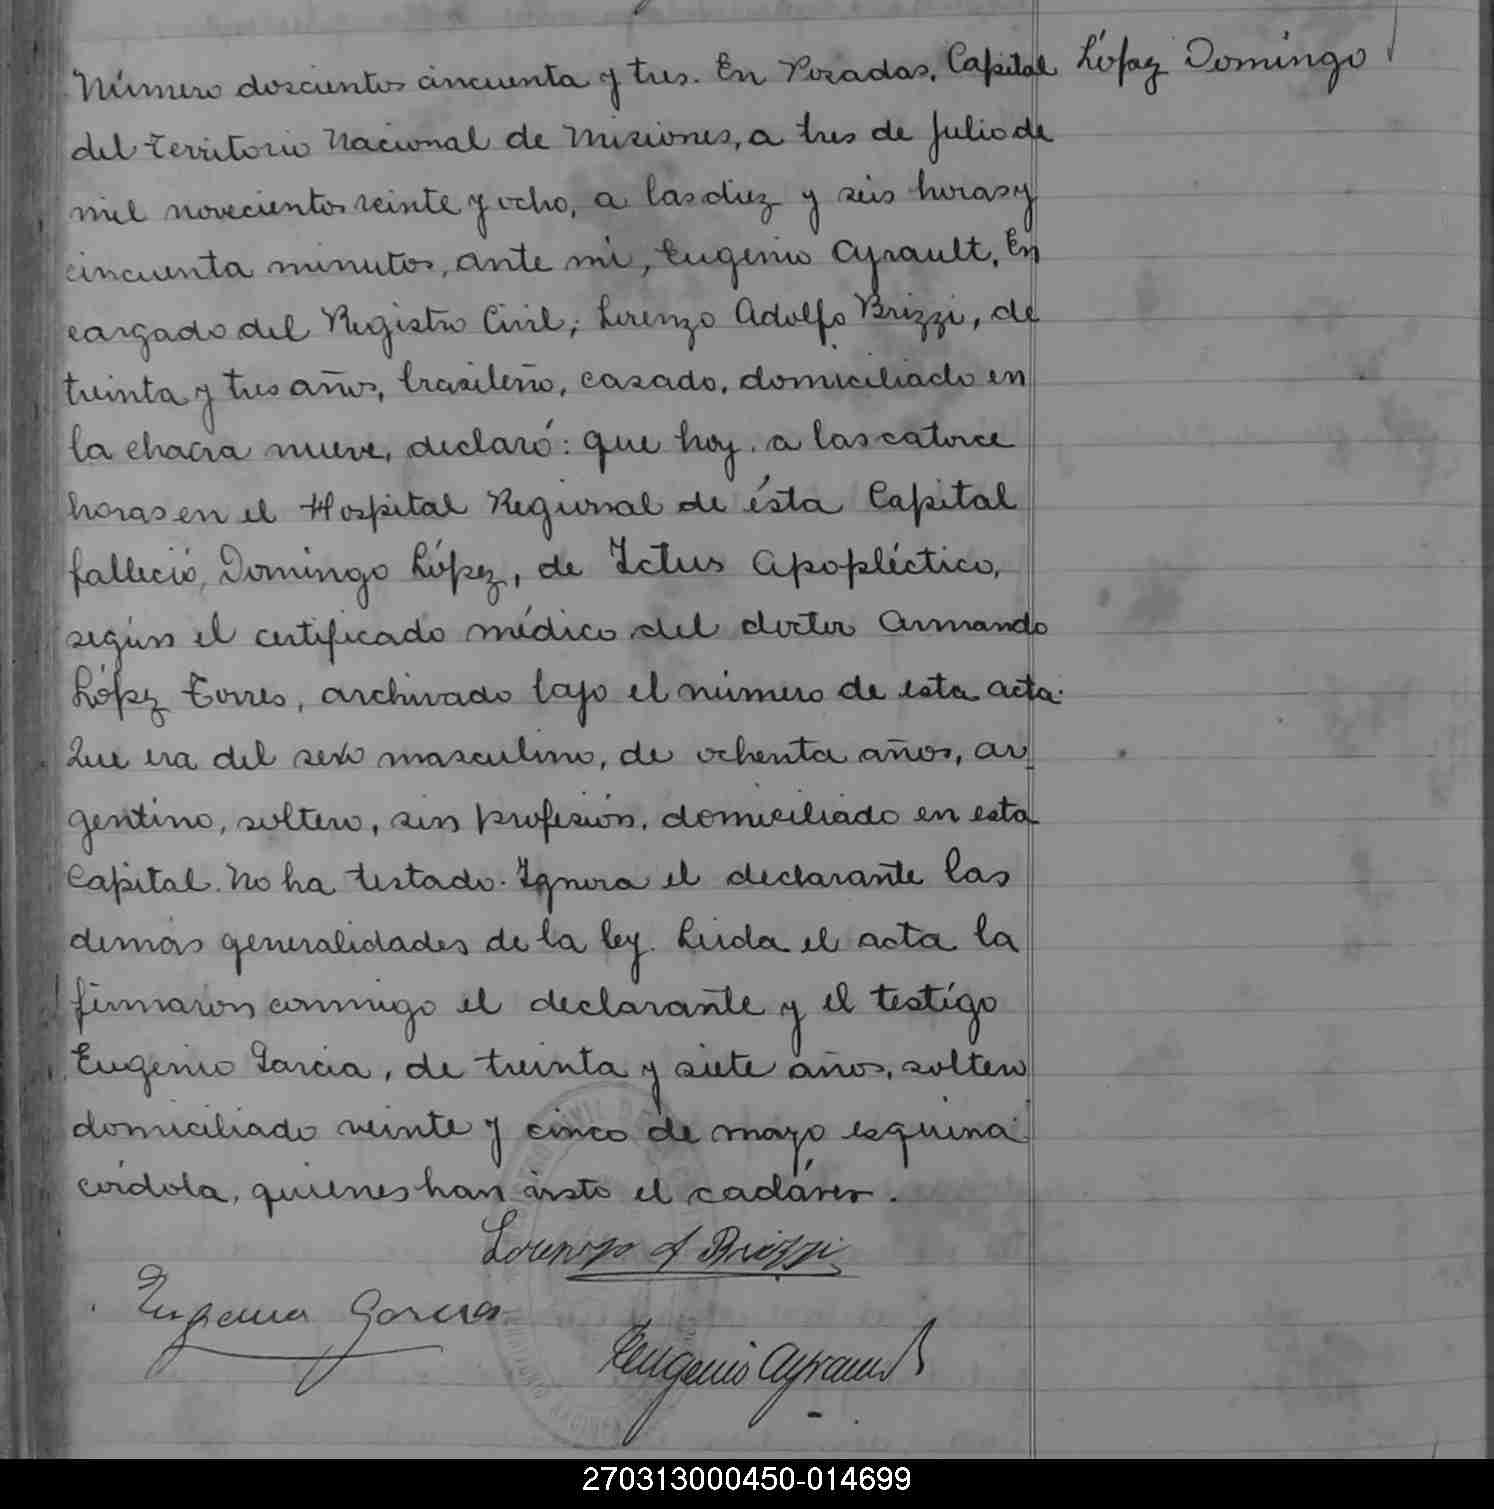 Número doscientos cincuenta y tres. En Posadas, Capital
López Domingo
del territorio Nacional de Misiones, a tres de Julio de
mil novecientos veinte y ocho, a las diez y seis horas y
cincuenta minutos, ante mí, Eugenio Ayrault, En
cargado del Registro Civil; Lorenzo Adolfo Brizzi, de
treinta y tres años, brasileño, casado, domiciliado en
la chacra nueve, declaró: que hoy a las catorce
horas en el Hospital Regional de ésta Capital
falleció, Domingo López, de Ictus Apopléctico,
según el certificado médico del doctor Armando
López Torres, archivado bajo el número de esta acta.
Que era del sexo masculino, de ochenta años, ar
gentino, soltero, sin profesión, domiciliado en esta
Capital. No ha testado. Ignora el declarante las
demás generalidades de la ley. Leida el acta la
firmaron conmigo el declarante y el testigo
Eugenio Garcia, de treinta y siete años, soltero
domiciliado veinte y cinco de mayo esquina
córdoba, quienes han visto el cadáver.
Lorenzo A Brizzi
Eugenio Garcia
Eugenio Ayrault
270313000450-014699